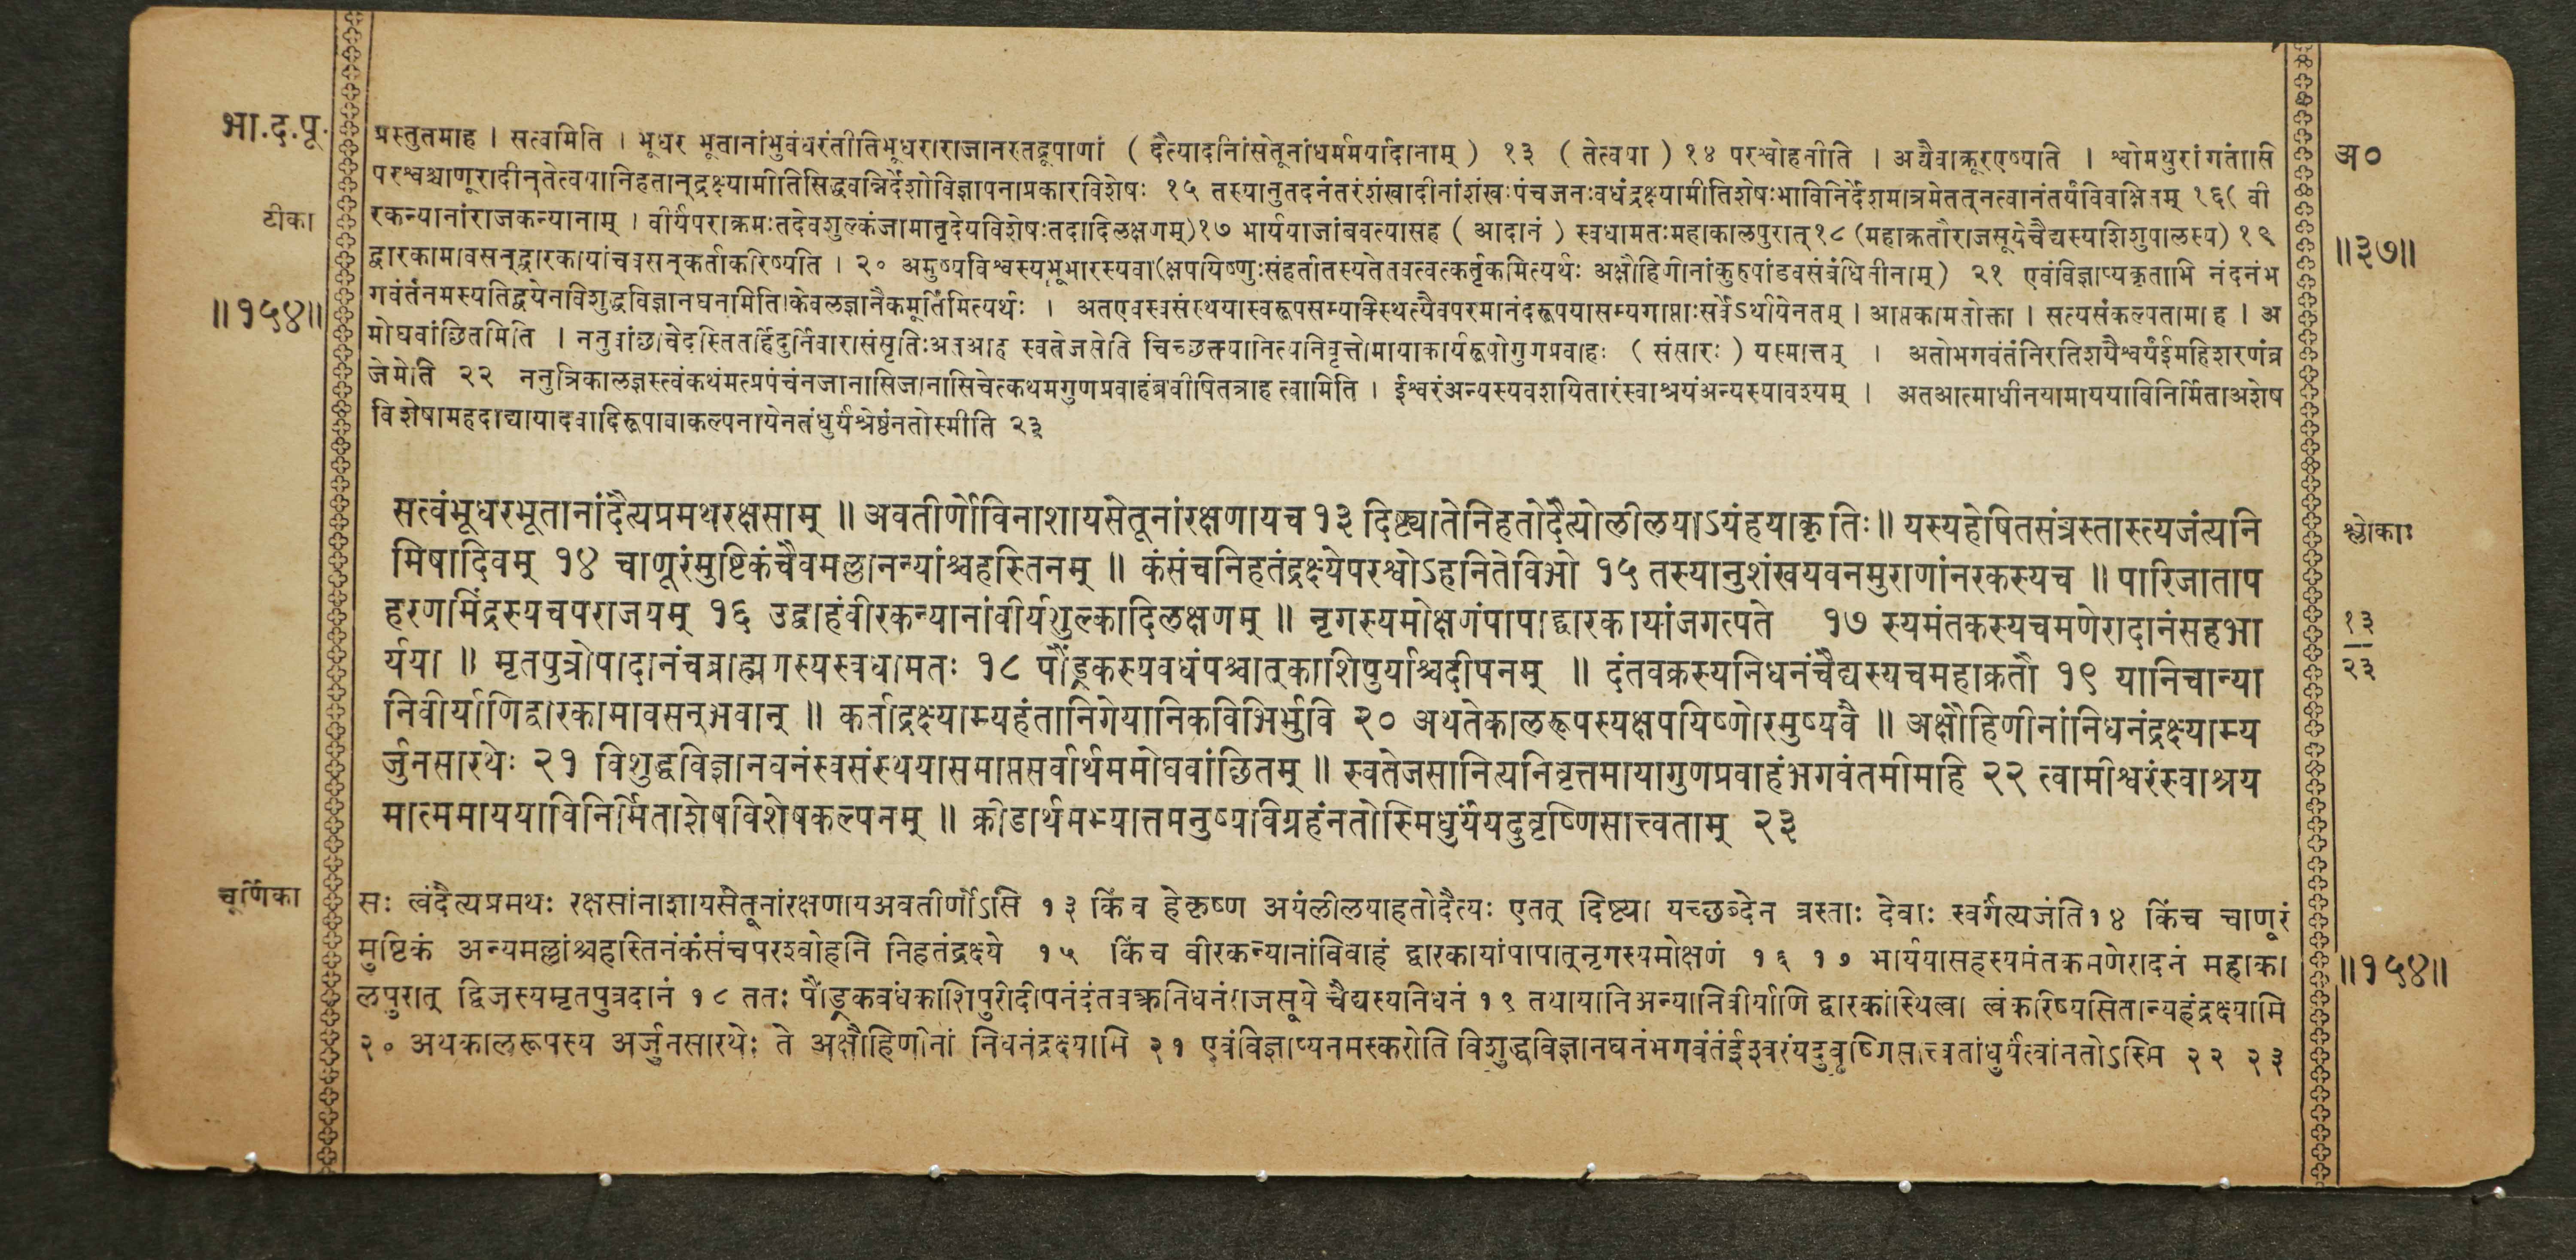 भा.द.पू.
टीका
॥१५४॥
प्रस्तुतमाह । सत्वमिति । भूधर भूतानांभुवंधरंतीतिभूधराराजानस्तद्रूपाणां ( दैत्यादीनांसेतूनांधर्ममर्यादानाम् ) १३ ( तेत्वया ) १४ परश्वोहनीति । अद्यैवाक्रूरएष्यति । श्वोमथुरांगतासि
परश्वश्चाणूरादीन्तेत्वयानिहतान्द्रक्ष्यामीतिसिद्धवन्निर्देशोविज्ञापनाप्रकारविशेषः १५ तस्यानुतदनंतरंशंखादीनांशंखःपंचजनःवधंद्रक्ष्यामीतिशेषःभाविनिर्देशमात्रमेतत्नत्वानंतर्यंविवक्षितम् १६( वी
रकन्यानांराजकन्यानाम् । वीर्यंपराक्रमःतदेवशुल्कंजामातृदेयविशेषःतदादिलक्षणम्)१७ भार्ययाजांबवत्यासह ( आदानं ) स्वधामतःमहाकालपुरात्१८ (महाक्रतौराजसूयेचैद्यस्यशिशुपालस्य) १९
द्वारकामावसन्द्वारकायांचवसन्कर्ताकरिष्यति । २० अमुष्यविश्वस्यभूभारस्यवा(क्षपयिष्णुःसंहर्तातस्यतेतवत्वत्कर्तृकमित्यर्थः अक्षौहिणीनांकुरुपांडवसंबंधिनीनाम्) २१ एवंविज्ञाप्यकृताभि नंदनंभ
गवंतंनमस्यतिद्वयेनविशुद्धविज्ञानघनमिति।केवलज्ञानैकमूर्तिमित्यर्थः । अतएवस्वसंस्थयास्वरूपसम्यक्स्थित्यैवपरमानंदरूपयासम्यगाप्ताःसर्वेऽर्थायेनतम् । आप्तकामतोक्ता । सत्यसंकल्पतामाह । अ
मोघवांछितमिति । ननुवांछाचेदस्तितर्हिदुर्निवारासंसृतिःअतआह स्वतेजसेति चिच्छक्त्यानित्यनिवृत्तोमायाकार्यरूपोगुणप्रवाहः ( संसारः ) यस्मात्तम् । अतोभगवंतंनिरतिशयैश्वर्यंईमहिशरणंव्र
जेमेति २२ ननुत्रिकालज्ञस्त्वंकथंमत्प्रपंचंनजानासिजानासिचेत्कथमगुणप्रवाहंब्रवीषितत्राह त्वामिति । ईश्वरंअन्यस्यवशयितारंस्वाश्रयंअन्यस्यावश्यम् । अतआत्माधीनयामाययाविनिर्मिताअशेष
विशेषामहदाद्यायादवादिरूपावाकल्पनायेनतंधुर्यंश्रेष्ठंनतोस्मीति २३
अ०
॥३७॥
सत्वंभूधरभूतानांदैत्यप्रमथरक्षसाम् ॥ अवतीर्णोविनाशायसेतूनांरक्षणायच १३ दिष्ट्यातेनिहतोदैत्योलीलयाऽयंहयाकृतिः॥ यस्यहेषितसंत्रस्तास्त्यजंत्यनि
मिषादिवम् १४ चाणूरंमुष्टिकंचैवमल्लानन्यांश्चहस्तिनम् ॥ कंसंचनिहतंद्रक्ष्येपरश्वोऽहनितेविभो १५ तस्यानुशंखयवनमुराणांनरकस्यच ॥ पारिजाताप
हरणमिंद्रस्यचपराजयम् १६ उद्वाहंवीरकन्यानांवीर्यशुल्कादिलक्षणम् ॥ नृगस्यमोक्षणंपापाद्द्वारकायांजगत्पते १७ स्यमंतकस्यचमणेरादानंसहभा
र्यया ॥ मृतपुत्रोपादानंचब्राह्मणस्यस्वधामतः १८ पौंड्रकस्यवधंपश्चात्काशिपुर्याश्चदीपनम् ॥ दंतवक्रस्यनिधनंचैद्यस्यचमहाक्रतौ १९ यानिचान्या
निवीर्याणिद्वारकामावसन्भवान् ॥ कर्ताद्रक्ष्याम्यहंतानिगेयानिकविभिर्भुवि २० अथतेकालरूपस्यक्षपयिष्णोरमुष्यवै ॥ अक्षौहिणीनांनिधनंद्रक्ष्याम्य
र्जुनसारथेः २१ विशुद्धविज्ञानघनंस्वसंस्थयासमाप्तसर्वार्थममोघवांछितम् ॥ स्वतेजसानित्यनिवृत्तमायागुणप्रवाहंभगवंतमीमहि २२ त्वामीश्वरंस्वाश्रय
मात्ममाययाविनिर्मिताशेषविशेषकल्पनम् ॥ क्रीडार्थमभ्यात्तमनुष्यविग्रहंनतोस्मिधुर्यंयदुवृष्णिसात्त्वताम् २३
श्लोकाः
१३
२३
चूर्णिका
सः त्वंदैत्यप्रमथः रक्षसांनाशायसेतूनांरक्षणायअवतीर्णोऽसि १३ किंच हेकृष्ण अयंलीलयाहतोदैत्यः एतत् दिष्ट्या यच्छब्देन त्रस्ताः देवाः स्वर्गंत्यजंति१४ किंच चाणूरं
मुष्टिकं अन्यमल्लांश्चहस्तिनंकंसंचपरश्वोहनि निहतंद्रक्ष्ये १५ किंच वीरकन्यानांविवाहं द्वारकायांपापात्नृगस्यमोक्षणं १६ १७ भार्ययासहस्यमंतकमणेरादनं महाका
लपुरात् द्विजस्यमृतपुत्रदानं १८ ततः पौंड्रकवधंकाशिपुरीदीपनंदंतवक्रनिधनंराजसूये चैद्यस्यनिधनं १९ तथायानिअन्यानिवीर्याणि द्वारकांस्थित्वा त्वंकरिष्यसितान्यहंद्रक्ष्यामि
२० अथकालरूपस्य अर्जुनसारथेः ते अक्षौहिणीनां निधनंद्रक्ष्यामि २१ एवंविज्ञाप्यनमस्करोति विशुद्धविज्ञानघनंभगवंतंईश्वरंयदुवृष्णिसात्त्वतांधुर्यंत्वांनतोऽस्मि २२ २३
॥१५४॥